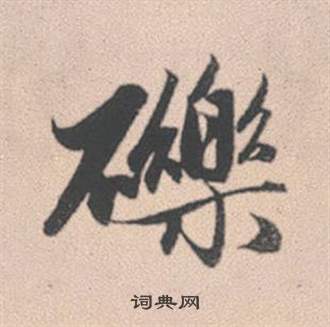 礫
词典网